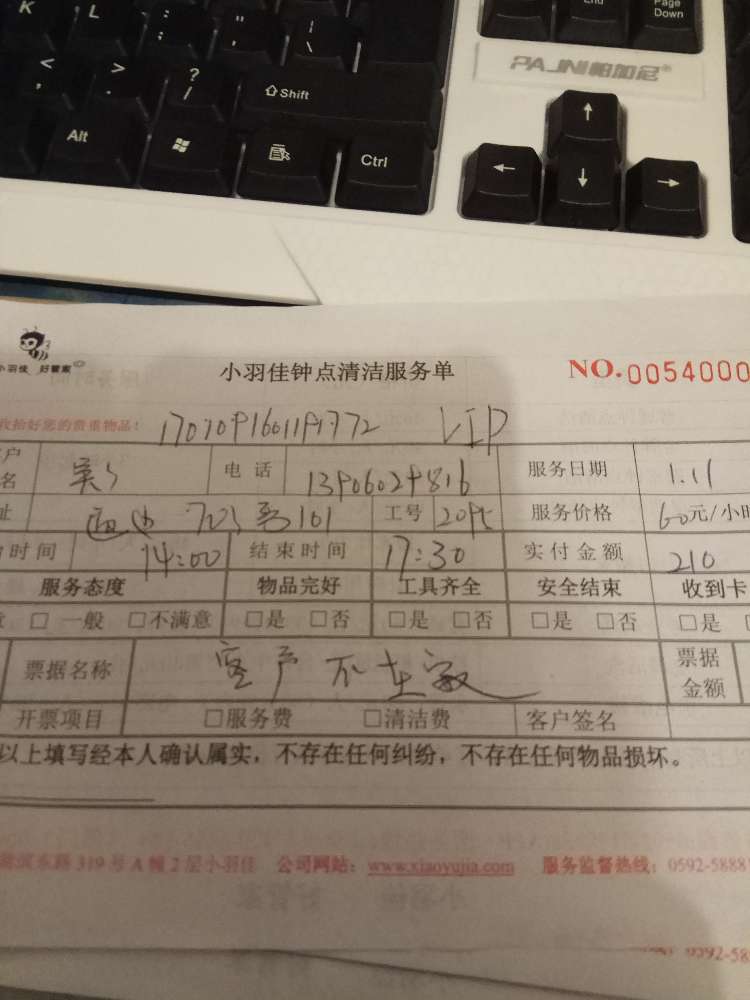 K L : ; " ' | \ End Page Down
< , > . ? / ⇧Shift PAJNI帕加尼®
Alt Ctrl ↑ ← ↓ →
小羽佳 好管家
小羽佳钟点清洁服务单 NO.0054000
收拾好您的贵重物品! VIP
户名 电话 13906029816 服务日期 1.11
址 101 工号 服务价格 60元/小时
时间 14:00 结束时间 17:30 实付金额 210
服务态度 物品完好 工具齐全 安全结束 收到卡
意 □ 一般 □不满意 □是 □否 □是 □否 □是 □否 □是
票据名称 客户不在家 票据金额
开票项目 □服务费 □清洁费 客户签名
以上填写经本人确认属实,不存在任何纠纷,不存在任何物品损坏。
湖滨东路319号A幢2层小羽佳 公司网站:www.xiaoyujia.com 服务监督热线:0592-5888
0592-58